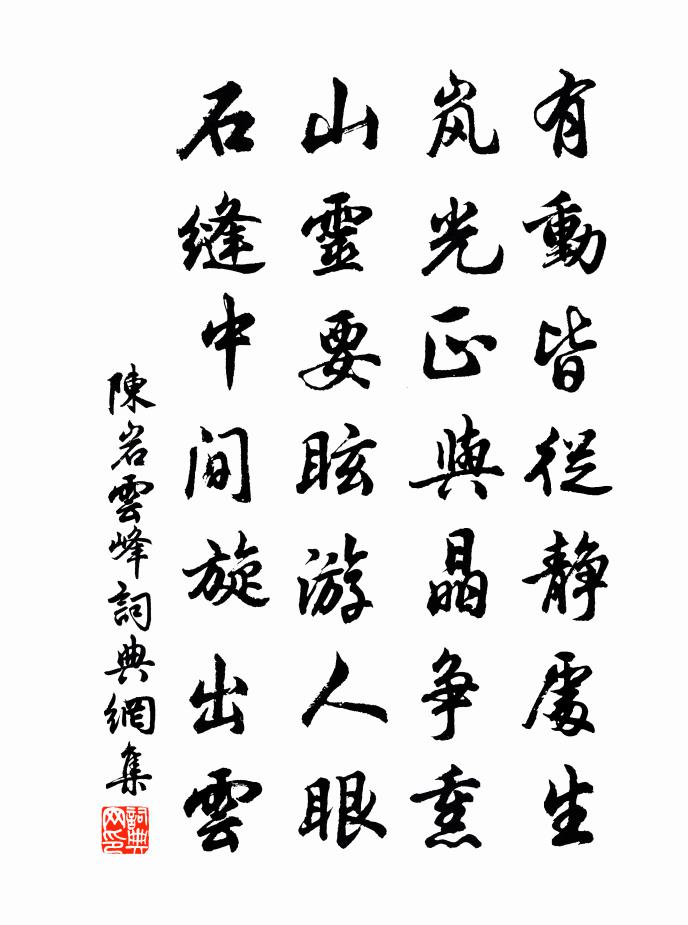 有動皆從静處生
岚光正與晶争熏
山靈要眩游人眼
石縫中間旋出雲
陳岩雲峰詞典網集
詞典网印